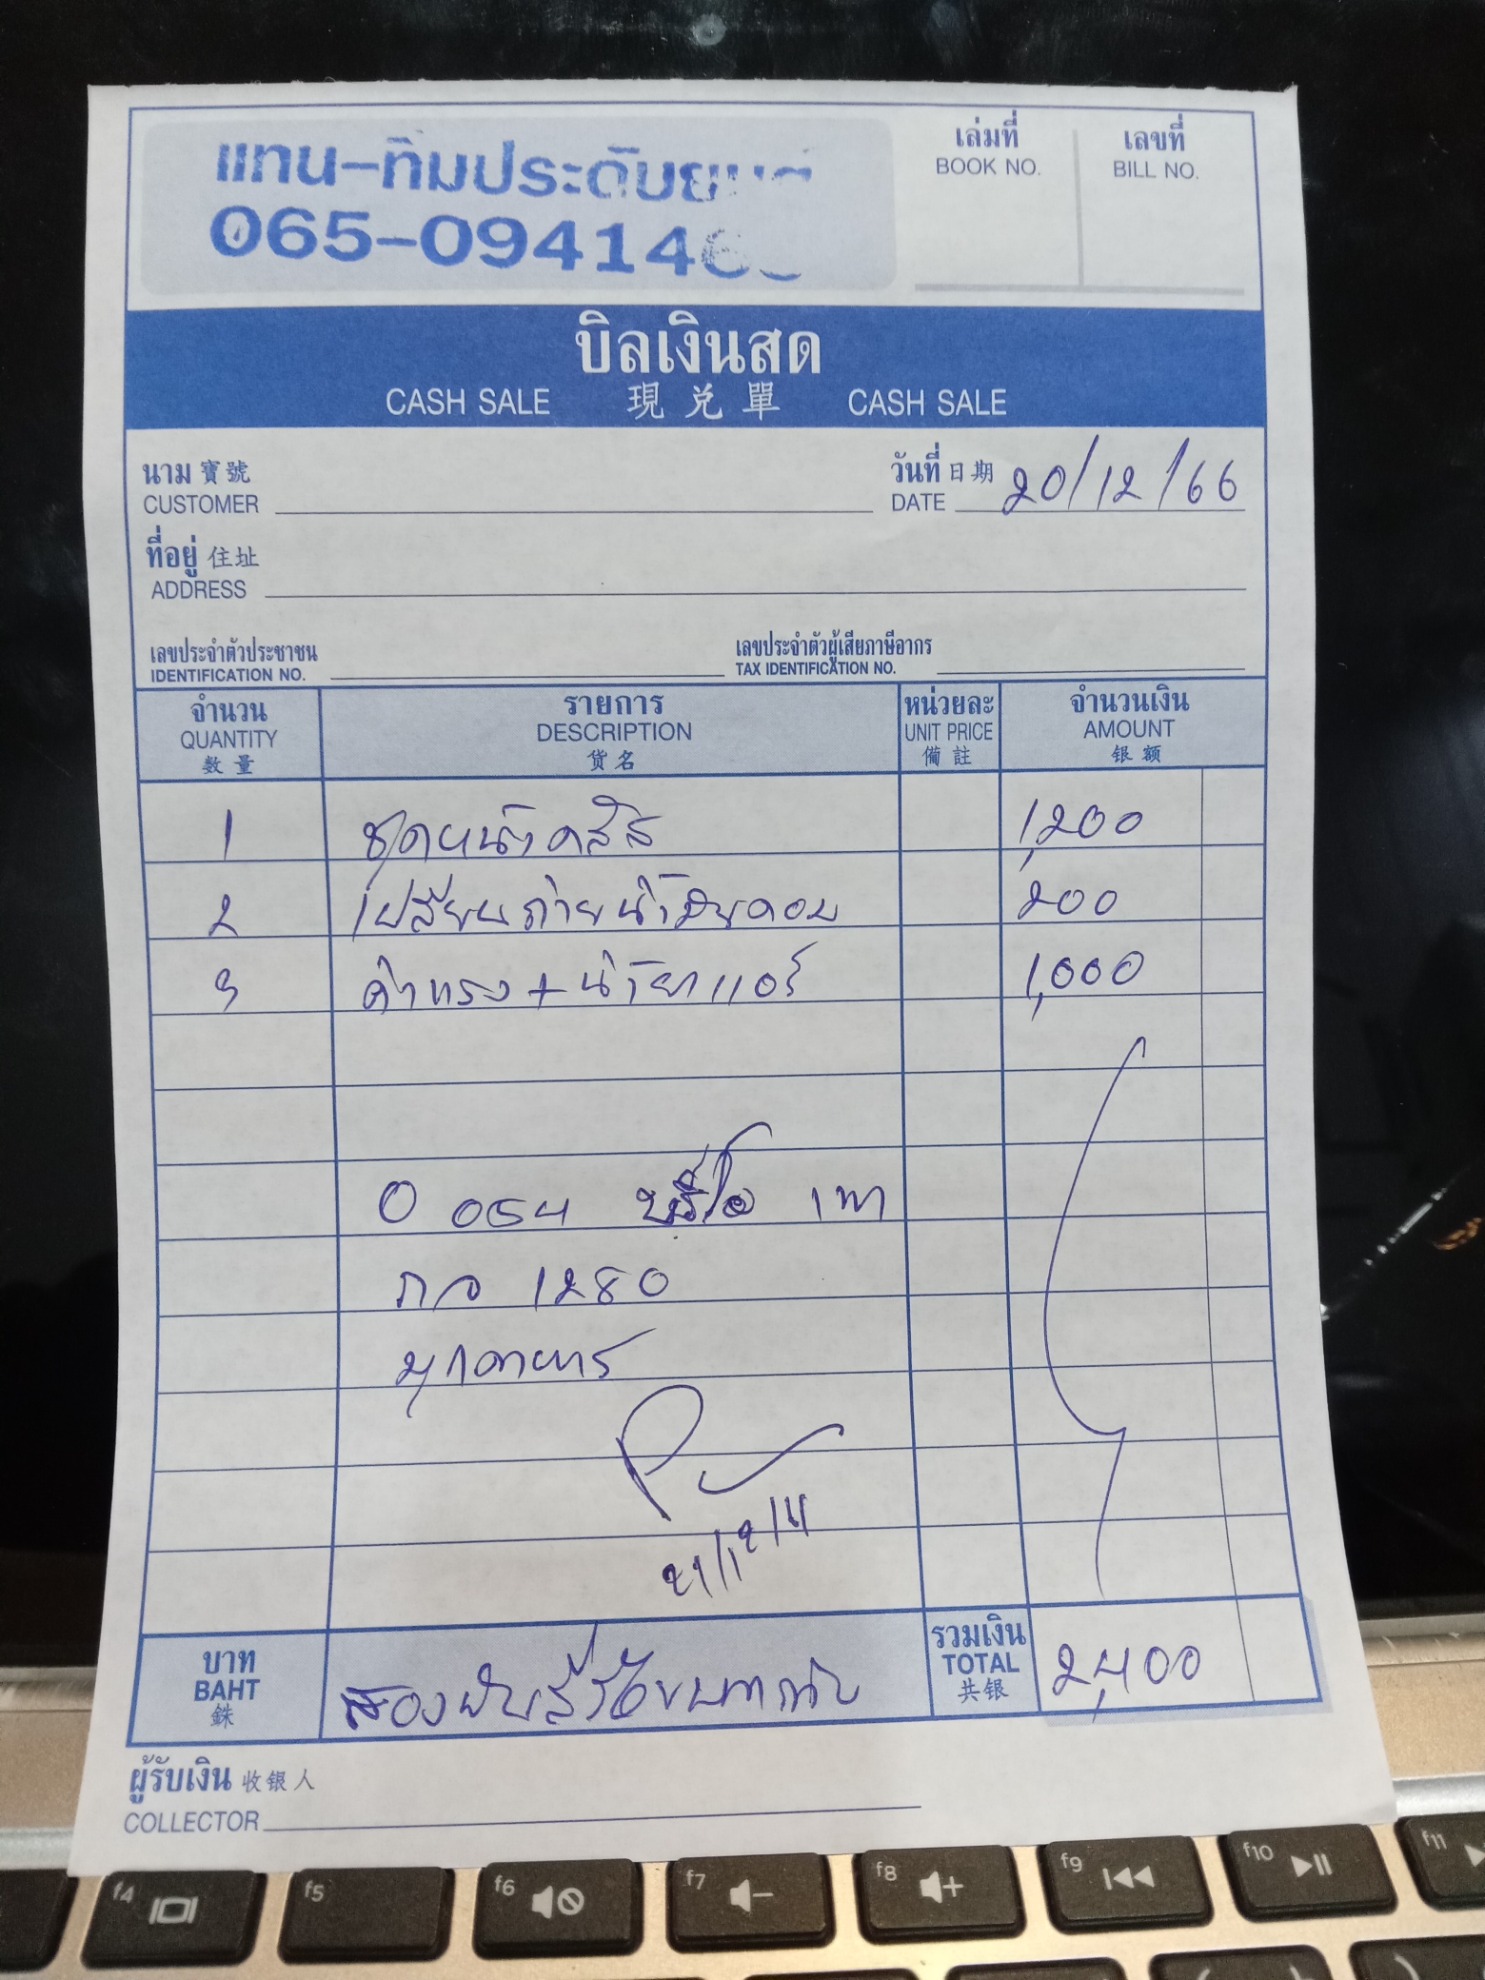 แทน-ทิมประดับยนต์
065-09414
เล่มที่
BOOK NO.
เลขที่
BILL NO.
บิลเงินสด
CASH SALE 現兑單 CASH SALE
นาม 寶號
CUSTOMER
วันที่ 日期
DATE 20/12/66
ที่อยู่ 住址
ADDRESS
เลขประจำตัวประชาชน
IDENTIFICATION NO.
เลขประจำตัวผู้เสียภาษีอากร
TAX IDENTIFICATION NO.
จำนวน รายการ หน่วยละ จำนวนเงิน
QUANTITY DESCRIPTION UNIT PRICE AMOUNT
数量 货名 備註 银额
1 ชุดหน้าคลัส 1,200
2 เปลี่ยนถ่ายน้ำมันคอม 200
3 ค่าแรง + น้ำยาแอร์ 1,000
0 054 บรีโอ เทา
กว 1280
มุกดาหาร
21/12/66
บาท
BAHT
銖
สองพันสี่ร้อยบาทถ้วน
รวมเงิน
TOTAL
共银
2,400
ผู้รับเงิน 收银人
COLLECTOR
f4 f5 f6 f7 f8 f9 f10 f11